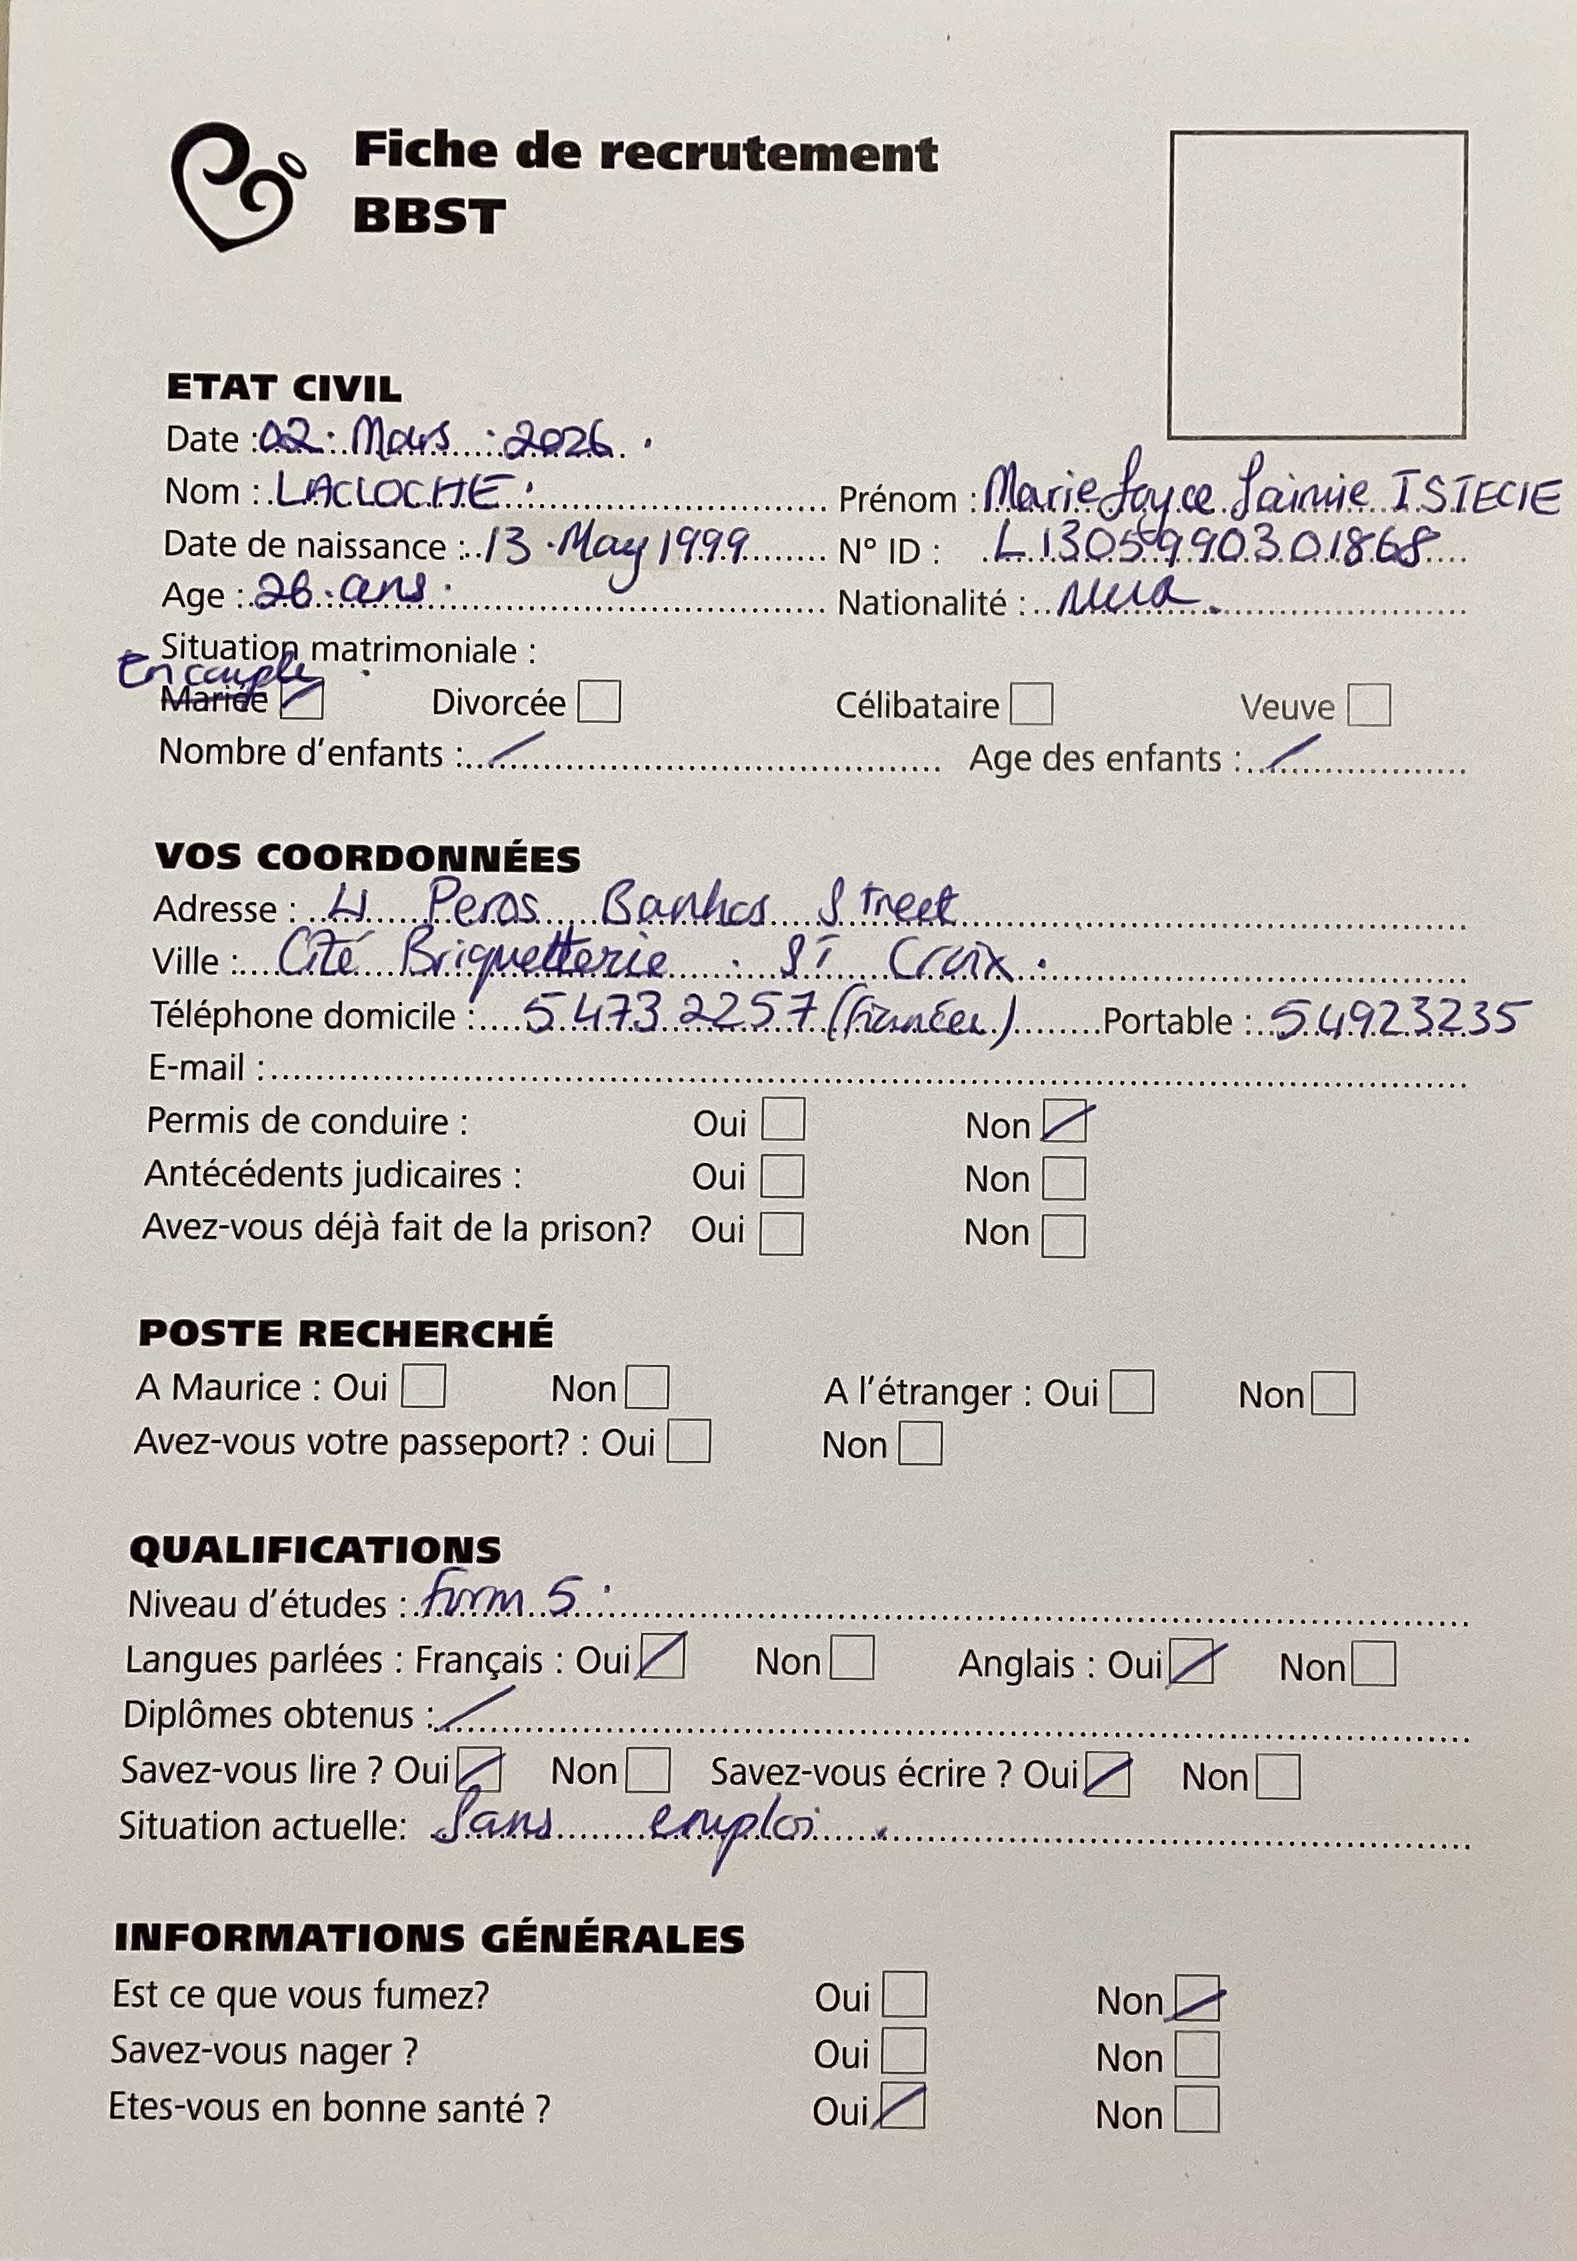 Fiche de recrutement
BBST
ETAT CIVIL
Date : 02. Mars : 2026.
Nom : LACLOCHE. Prénom : Marie Joyce Jaimie ISTECIE
Date de naissance : 13. May 1999 N° ID : L1305990301868
Age : 26. ans. Nationalité :
Situation matrimoniale :
En couple
Mariée Divorcée Célibataire Veuve
Nombre d'enfants : / Age des enfants : /
VOS COORDONNÉES
Adresse : 4 Peros Banhos Street
Ville : Cité Briquetterie. ST Croix.
Téléphone domicile : 5473 2257 Portable : 54923235
E-mail :
Permis de conduire : Oui Non
Antécédents judicaires : Oui Non
Avez-vous déjà fait de la prison? Oui Non
POSTE RECHERCHÉ
A Maurice : Oui Non A l'étranger : Oui Non
Avez-vous votre passeport? : Oui Non
QUALIFICATIONS
Niveau d'études : form 5
Langues parlées : Français : Oui Non Anglais : Oui Non
Diplômes obtenus : /
Savez-vous lire ? Oui Non Savez-vous écrire ? Oui Non
Situation actuelle: Sans emploi.
INFORMATIONS GÉNÉRALES
Est ce que vous fumez? Oui Non
Savez-vous nager ? Oui Non
Etes-vous en bonne santé ? Oui Non